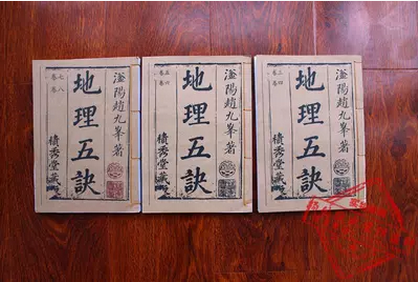 滏陽趙九峯著
地理五訣
積秀堂藏
七八
卷卷
滏陽趙九峯著
地理五訣
積秀堂藏
五六
卷卷
滏陽趙九峯著
地理五訣
積秀堂藏
三四
卷卷